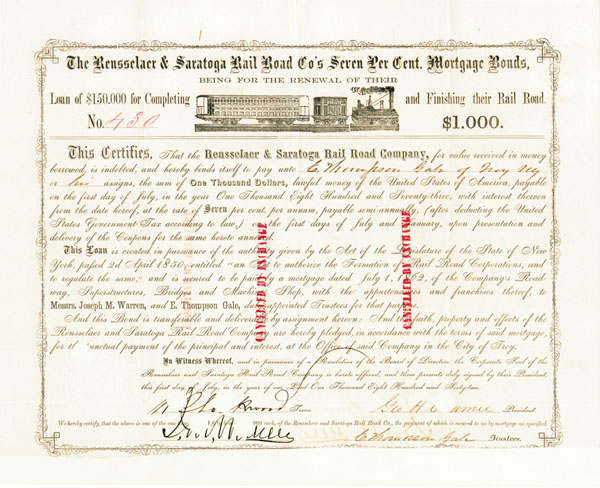 The Rensselaer & Saratoga Rail Road Co's Seven Per Cent. Mortgage Bonds,
BEING FOR THE RENEWAL OF THEIR
Loan of $150,000 for Completing and Finishing their Rail Road.
No. 430 $1.000.
This Certifies, That the Rensselaer & Saratoga Rail Road Company, for value received in money
borrowed, is indebted, and hereby binds itself to pay unto E. Thompson Gale of Troy NY
or his assigns, the sum of One Thousand Dollars, lawful money of the United States of America, payable
on the first day of July, in the year One Thousand Eight Hundred and Seventy-three, with interest thereon
from the date hereof, at the rate of Seven per cent. per annum, payable semi-annually, (after deducting the United
States Government Tax according to law,) on the first days of July and January, upon presentation and
delivery of the Coupons for the same hereto annexed.
This Loan is created in pursuance of the authority given by the Act of the Legislature of the State of New
York, passed 2d April 1850, entitled "an Act to authorize the Formation of Rail Road Corporations, and
to regulate the same," and is secured to be paid by a mortgage dated July 1, of the Company's Road-
way, Superstructure, Bridges and Machine Shop, with the appurtenances and franchises thereof, to
Messrs. Joseph M. Warren, and E. Thompson Gale, duly appointed Trustees for that purpose.
And this Bond is transferable and deliverable by assignment hereon: And the faith, property and effects of the
Rensselaer and Saratoga Rail Road Company are hereby pledged, in accordance with the terms of said mortgage,
for the punctual payment of the principal and interest, at the Office of said Company in the City of Troy.
In Witness Whereof, and in pursuance of a Resolution of the Board of Directors, the Corporate Seal of the
Rensselaer and Saratoga Rail Road Company is hereto affixed, and these presents duly signed by their President,
this first day of July, in the year of our Lord One Thousand Eight Hundred and Sixty-two.
Treas. Geo H President.
We hereby certify, that the above is one of the each, of the Rensselaer and Saratoga Rail Road Co., the payment of which is secured to us by mortgage as specified.
E Thompson Gale Trustees.
CANCELLED BY EXCHANGE
CANCELLED BY EXCHANGE